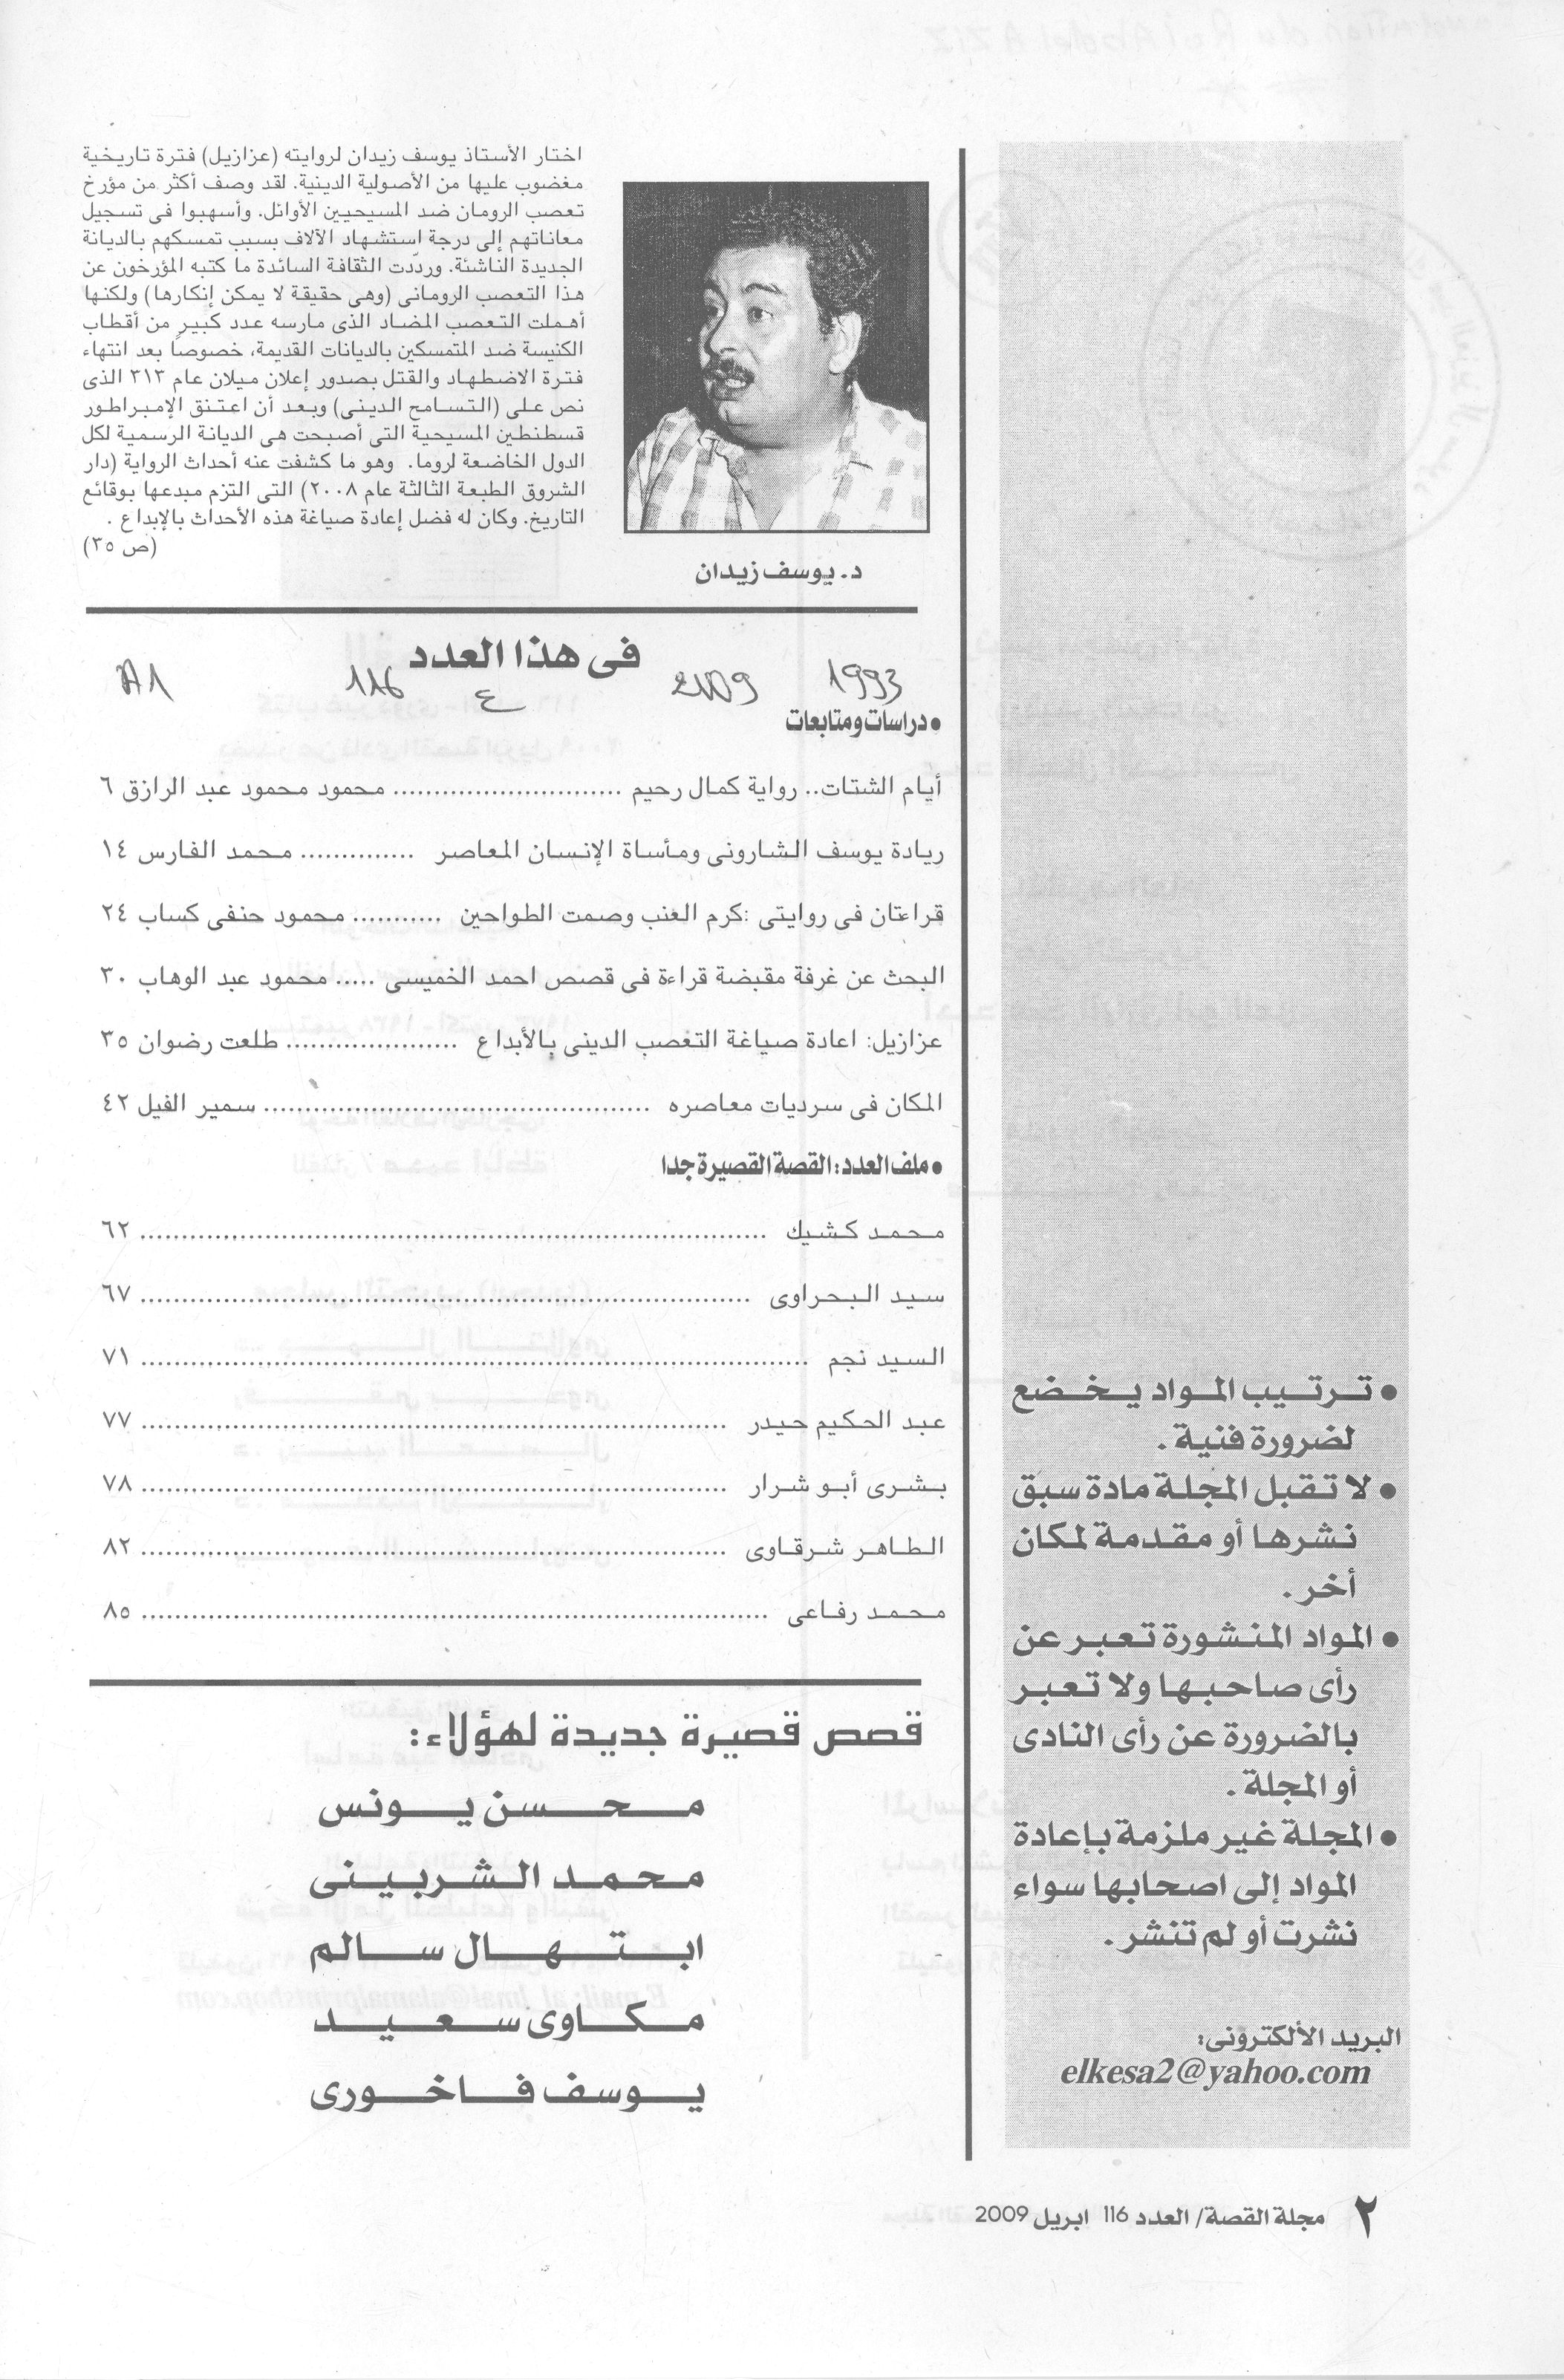 اختار الأستاذ يوسف زيدان لروايته (عزازيل) فترة تاريخية
مغضوب عليها من الأصولية الدينية. لقد وصف أكثر من مؤرخ
تعصب الرومان ضد المسيحيين الأوائل. وأسهبوا فى تسجيل
معاناتهم إلى درجة استشهاد الآلاف بسبب تمسكهم بالديانة
الجديدة الناشئة. وردّدت الثقافة السائدة ما كتبه المؤرخون عن
هذا التعصب الرومانى (وهى حقيقة لا يمكن إنكارها) ولكنها
أهملت التعصب المضاد الذى مارسه عدد كبير من أقطاب
الكنيسة ضد المتمسكين بالديانات القديمة، خصوصاً بعد انتهاء
فترة الاضطهاد والقتل بصدور إعلان ميلان عام ٣١٣ الذى
نص على (التسامح الدينى) وبعد أن اعتنق الإمبراطور
قسطنطين المسيحية التى أصبحت هى الديانة الرسمية لكل
الدول الخاضعة لروما. وهو ما كشفت عنه أحداث الرواية (دار
الشروق الطبعة الثالثة عام ٢٠٠٨) التى التزم مبدعها بوقائع
التاريخ. وكان له فضل إعادة صياغة هذه الأحداث بالإبداع .
(ص ٣٥)
د. يوسف زيدان
فى هذا العدد
1993 2009 ع 116 A1
• دراسات ومتابعات
أيام الشتات.. رواية كمال رحيم ............................ محمود محمود عبد الرازق ٦
ريادة يوسف الشارونى ومأساة الإنسان المعاصر .............. محمد الفارس ١٤
قراءتان فى روايتى :كرم العنب وصمت الطواحين ........... محمود حنفى كساب ٢٤
البحث عن غرفة مقبضة قراءة فى قصص احمد الخميسى ..... محمود عبد الوهاب ٣٠
عزازيل: اعادة صياغة التعصب الدينى بالأبداع ..................... طلعت رضوان ٣٥
المكان فى سرديات معاصره ............................................... سمير الفيل ٤٢
• ملف العدد: القصة القصيرة جدا
محمد كشيك ............................................................................ ٦٢
سيد البحراوى .......................................................................... ٦٧
السيد نجم ................................................................................. ٧١
عبد الحكيم حيدر ....................................................................... ٧٧
بشرى أبو شرار ....................................................................... ٧٨
الطاهر شرقاوى ....................................................................... ٨٢
محمد رفاعى ............................................................................ ٨٥
قصص قصيرة جديدة لهؤلاء:
محسن يونس
محمد الشربينى
ابتهال سالم
مكاوى سعيد
يوسف فاخورى
• ترتيب المواد يخضع
لضرورة فنية .
• لا تقبل المجلة مادة سبق
نشرها أو مقدمة لمكان
أخر .
• المواد المنشورة تعبر عن
رأى صاحبها ولا تعبر
بالضرورة عن رأى النادى
أو المجلة .
• المجلة غير ملزمة بإعادة
المواد إلى اصحابها سواء
نشرت أو لم تنشر .
البريد الألكترونى:
elkesa2@yahoo.com
٢ مجلة القصة/ العدد 116 ابريل 2009